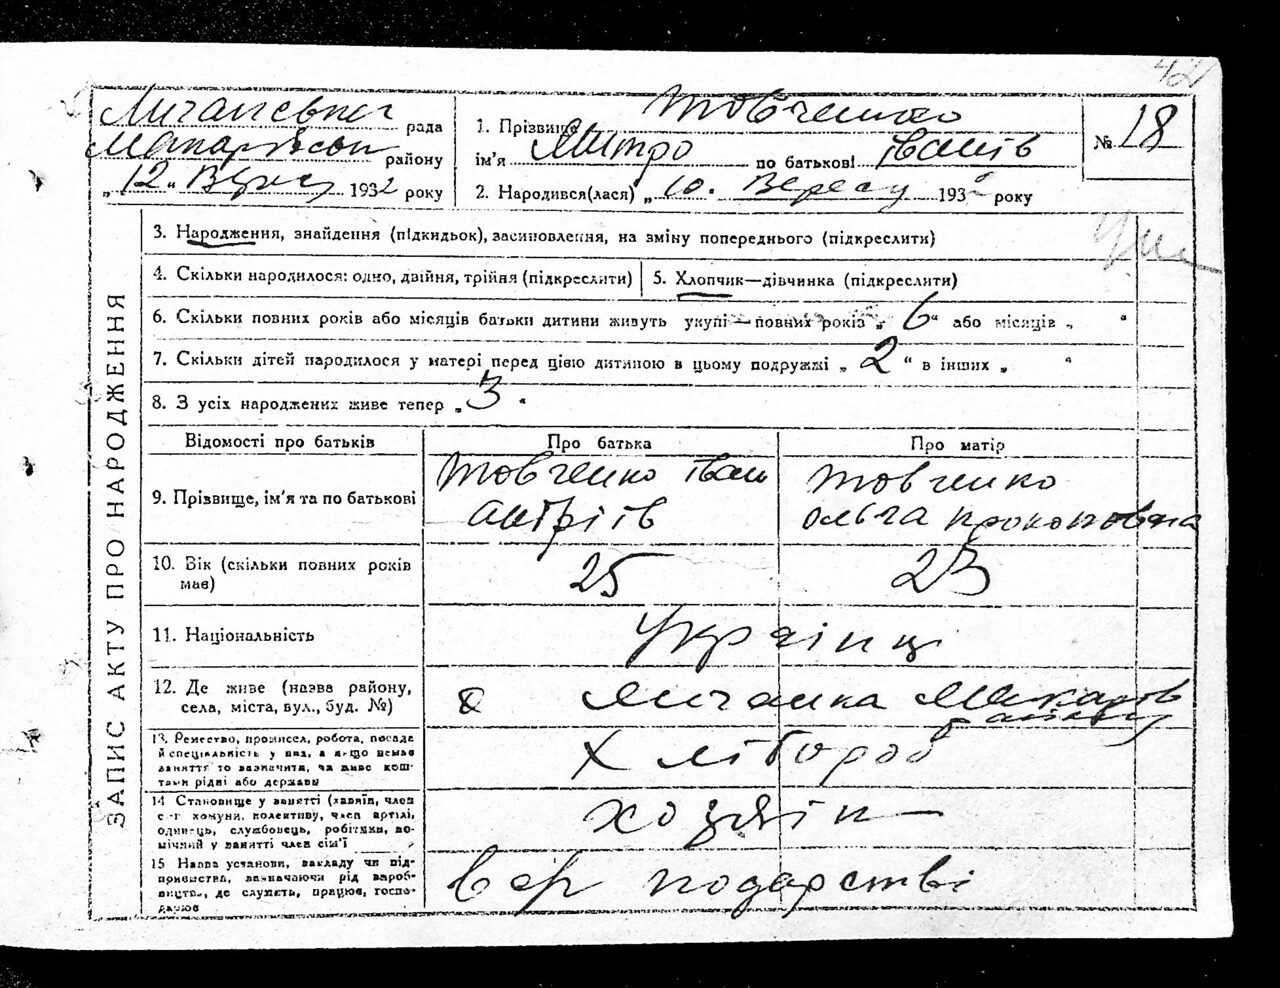 42
Личанська рада
Макарівськ району
„12“ Верес 1932 року
1. Прізвище Товченко
ім'я Митро по батькові Іванів
2. Народився(лася) „10. Вересу 1932 року
№ 18
ЗАПИС АКТУ ПРО НАРОДЖЕННЯ
3. Народження, знайдення (підкидьок), засиновлення, на зміну попереднього (підкреслити)
4. Скільки народилося: одно, двійня, трійня (підкреслити)
5. Хлопчик—дівчинка (підкреслити)
6. Скільки повних років або місяців батьки дитини живуть укупі—повних років „6“ або місяців „ “
7. Скільки дітей народилося у матері перед цією дитиною в цьому подружжі „2“ в інших „ “
8. З усіх народжених живе тепер „3“
Відомості про батьків
Про батька
Про матір
9. Прізвище, ім'я та по батькові
Товченко Іван
Антріїв
Товченко
Ольга Прокоповна
10. Вік (скільки повних років
має)
25
23
11. Національність
Українці
12. Де живе (назва району,
села, міста, вул., буд. №)
Личанка Макарів
району
13. Ремество, промисел, робота, посада
й спеціяльність у них, а якщо немає
заняття то зазначити, чи живе кош-
тами рідні або держави
Хлібороб
14 Становище у занятті (хазяїн, член
с-г комуни, колективу, член артілі,
одинець, службовець, робітник, по-
мічний у занятті член сім'ї
хозяїн
15 Назва установи, закладу чи під-
приємства, зазначаючи рід вироб-
ництва, де служить, працює, госпо-
дарює
в с/г подарстві